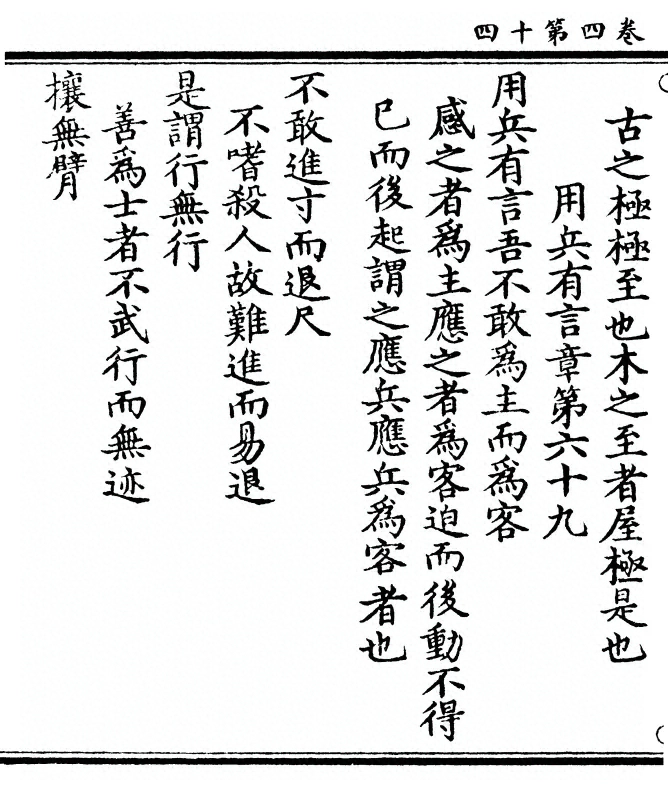 卷四第十四
古之極極至也木之至者屋極是也
用兵有言章第六十九
用兵有言吾不敢為主而為客
感之者為主應之者為客迫而後動不得
已而後起謂之應兵應兵為客者也
不敢進寸而退尺
不嗜殺人故難進而易退
是謂行無行
善為士者不武行而無迹
攘無臂